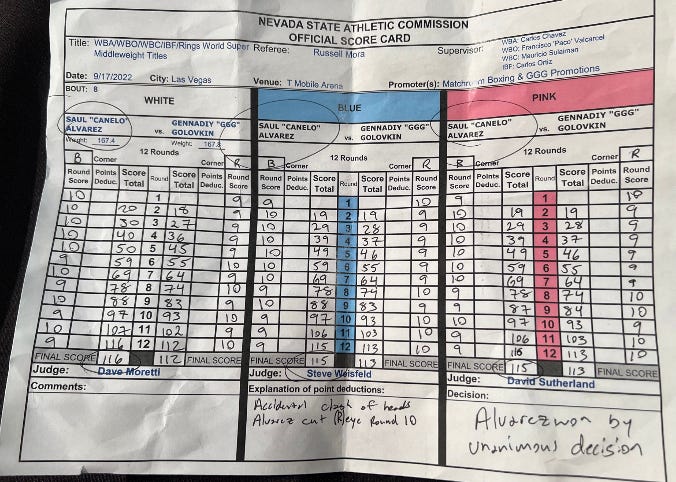 NEVADA STATE ATHLETIC COMMISSION
OFFICIAL SCORE CARD
Title: WBA/WBO/WBC/IBF/Rings World Super Middleweight Titles
Referee: Russell Mora
Supervisor: WBA: Carlos Chavez
WBO: Francisco "Paco" Valcarcel
WBC: Mauricio Sulaiman
IBF: Carlos Ortiz
Date: 9/17/2022 City: Las Vegas Venue: T Mobile Arena Promoter(s): Boxing & GGG Promotions
BOUT: 8
WHITE BLUE PINK
SAUL "CANELO" ALVAREZ vs. GENNADIY "GGG" GOLOVKIN SAUL "CANELO" ALVAREZ vs. GENNADIY "GGG" GOLOVKIN SAUL "CANELO" ALVAREZ vs. GENNADIY "GGG" GOLOVKIN
Weight: 167.4 Weight: 167.8
12 Rounds 12 Rounds 12 Rounds
B Corner Corner R B Corner Corner R B Corner Corner R
Round Score Points Deduc. Score Total Round Score Total Points Deduc. Round Score Round Score Points Deduc. Score Total Round Score Total Points Deduc. Round Score Round Score Points Deduc. Score Total Round Score Total Points Deduc. Round Score
10 1 9 9 1 10 9 1 10
10 20 2 18 9 10 19 2 19 9 10 19 2 19 9
10 30 3 27 9 10 29 3 28 9 10 29 3 28 9
10 40 4 36 9 10 39 4 37 9 10 39 4 37 9
10 50 5 45 9 10 49 5 46 9 10 49 5 46 9
9 59 6 55 10 10 59 6 55 9 10 59 6 55 9
10 69 7 64 9 10 69 7 64 9 10 69 7 64 9
9 78 8 74 10 9 78 8 74 10 9 78 8 74 10
10 88 9 83 9 10 88 9 83 9 9 87 9 84 10
9 97 10 93 10 9 97 10 93 10 10 97 10 93 9
10 107 11 102 9 9 106 11 103 10 9 106 11 103 10
9 116 12 112 10 9 115 12 113 10 9 115 12 113 10
FINAL SCORE 116 112 FINAL SCORE FINAL SCORE 115 113 FINAL SCORE FINAL SCORE 115 113 FINAL SCORE
Judge: Dave Moretti Judge: Steve Weisfeld Judge: David Sutherland
Comments: Explanation of point deductions: Decision:
Accidental clash of heads
Alvarez cut (R)eye Round 10
Alvarez won by
unanimous decision